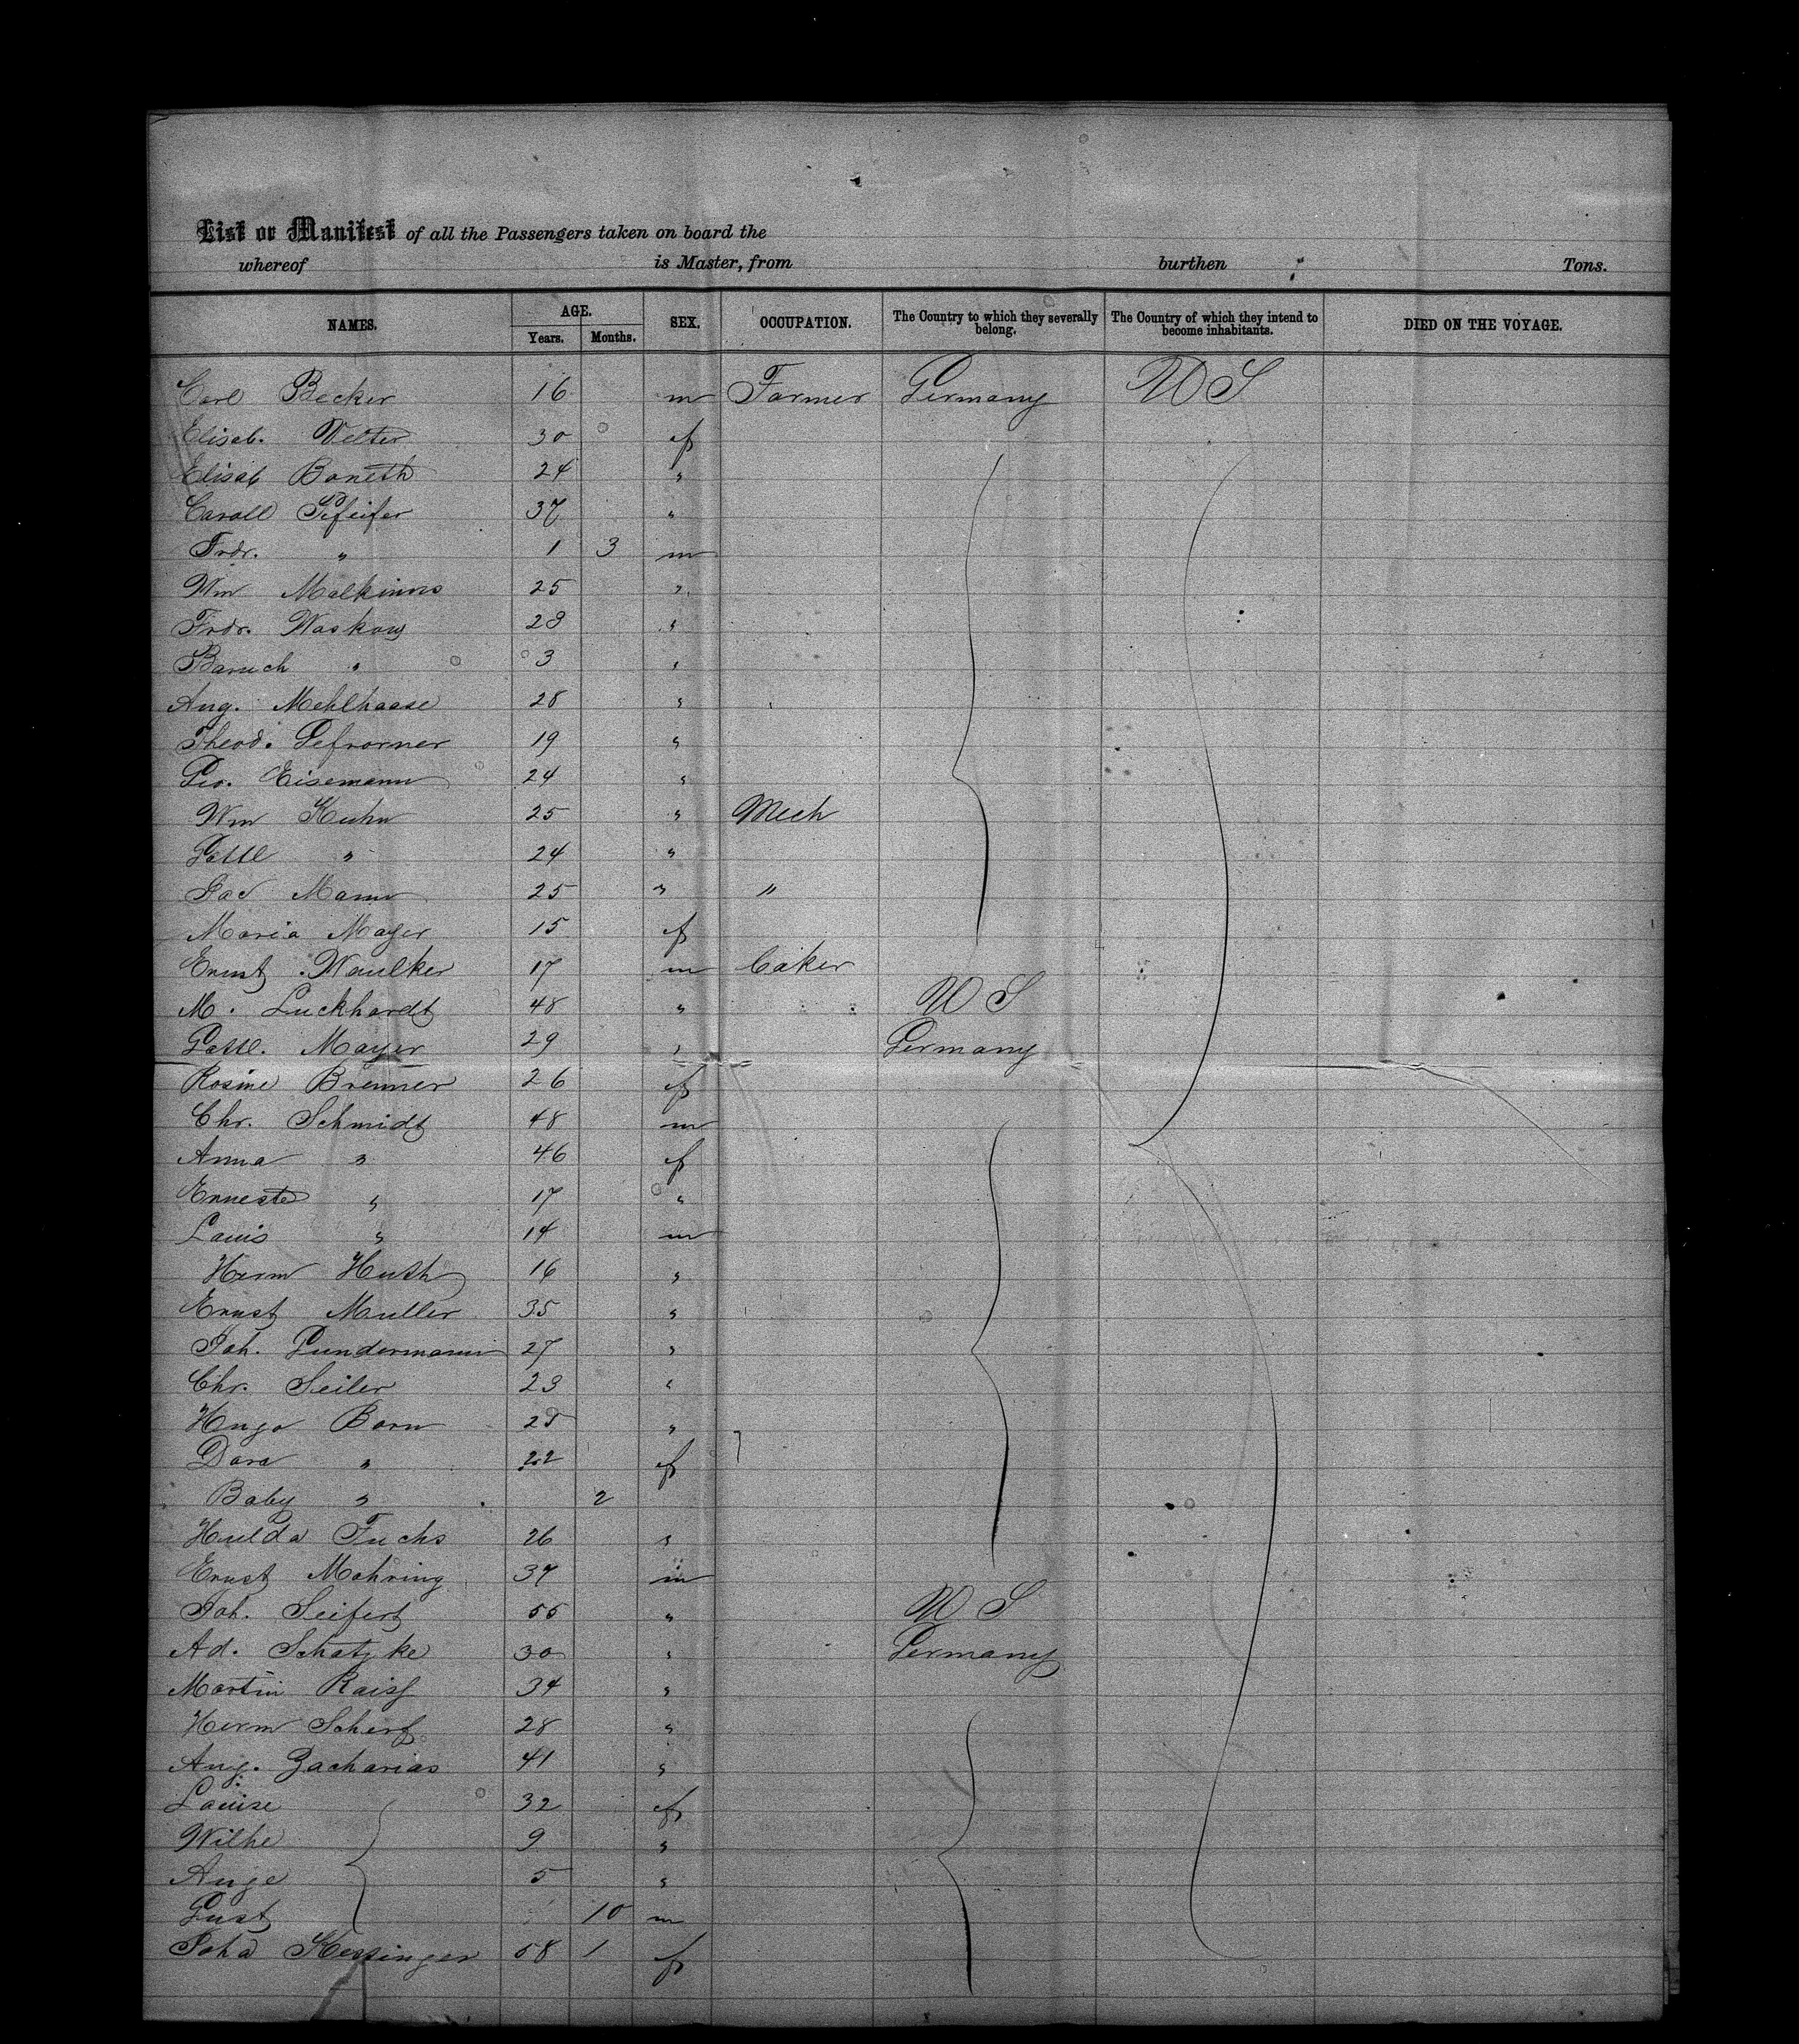 List or Manifest of all the Passengers taken on board the
whereof is Master, from burthen Tons.
NAMES. AGE. Years. Months. SEX. OCCUPATION. The Country to which they severally belong. The Country of which they intend to become inhabitants. DIED ON THE VOYAGE.
Carl Becker 16 m Farmer Germany U S
Elisab. Velter 30 f
Elisab Boneth 24 "
Caroll Pfeifer 37 "
Frdr. " 1 3 m
Wm Malkinns 25 "
Frdr. Waskow 28 "
Baruch " 3 "
Aug. Mehlhaase 28 "
Theod. Gefrorner 19 "
Geo. Eisemann 24 "
Wm Kuhn 25 " Mech
Gottl " 24 "
Jac Mann 25 " "
Maria Mayer 15 f
Ernst Waulker 17 m Baker
M. Luckhardt 48 " U S
Gottl. Mayer 29 " Germany
Rosine Brenner 26 f
Chr. Schmidt 48 m
Anna " 46 f
Erneste " 17 "
Louis " 14 m
Herm Huth 16 "
Ernst Muller 35 "
Joh. Gundermann 27 "
Chr. Seiler 23 "
Hugo Born 25 "
Dora " 22 f
Baby " 2
Hulda Fuchs 26 "
Ernst Mohring 37 m
Joh. Seifert 55 " U S
Ad. Schatzke 30 " Germany
Martin Raiss 34 "
Herm Scherf 28 "
Aug. Zacharias 41 "
Louise 32 f
Wilhe 9 "
Auge 5 "
Gust 10 m
Joha Kessinger 58 1 f